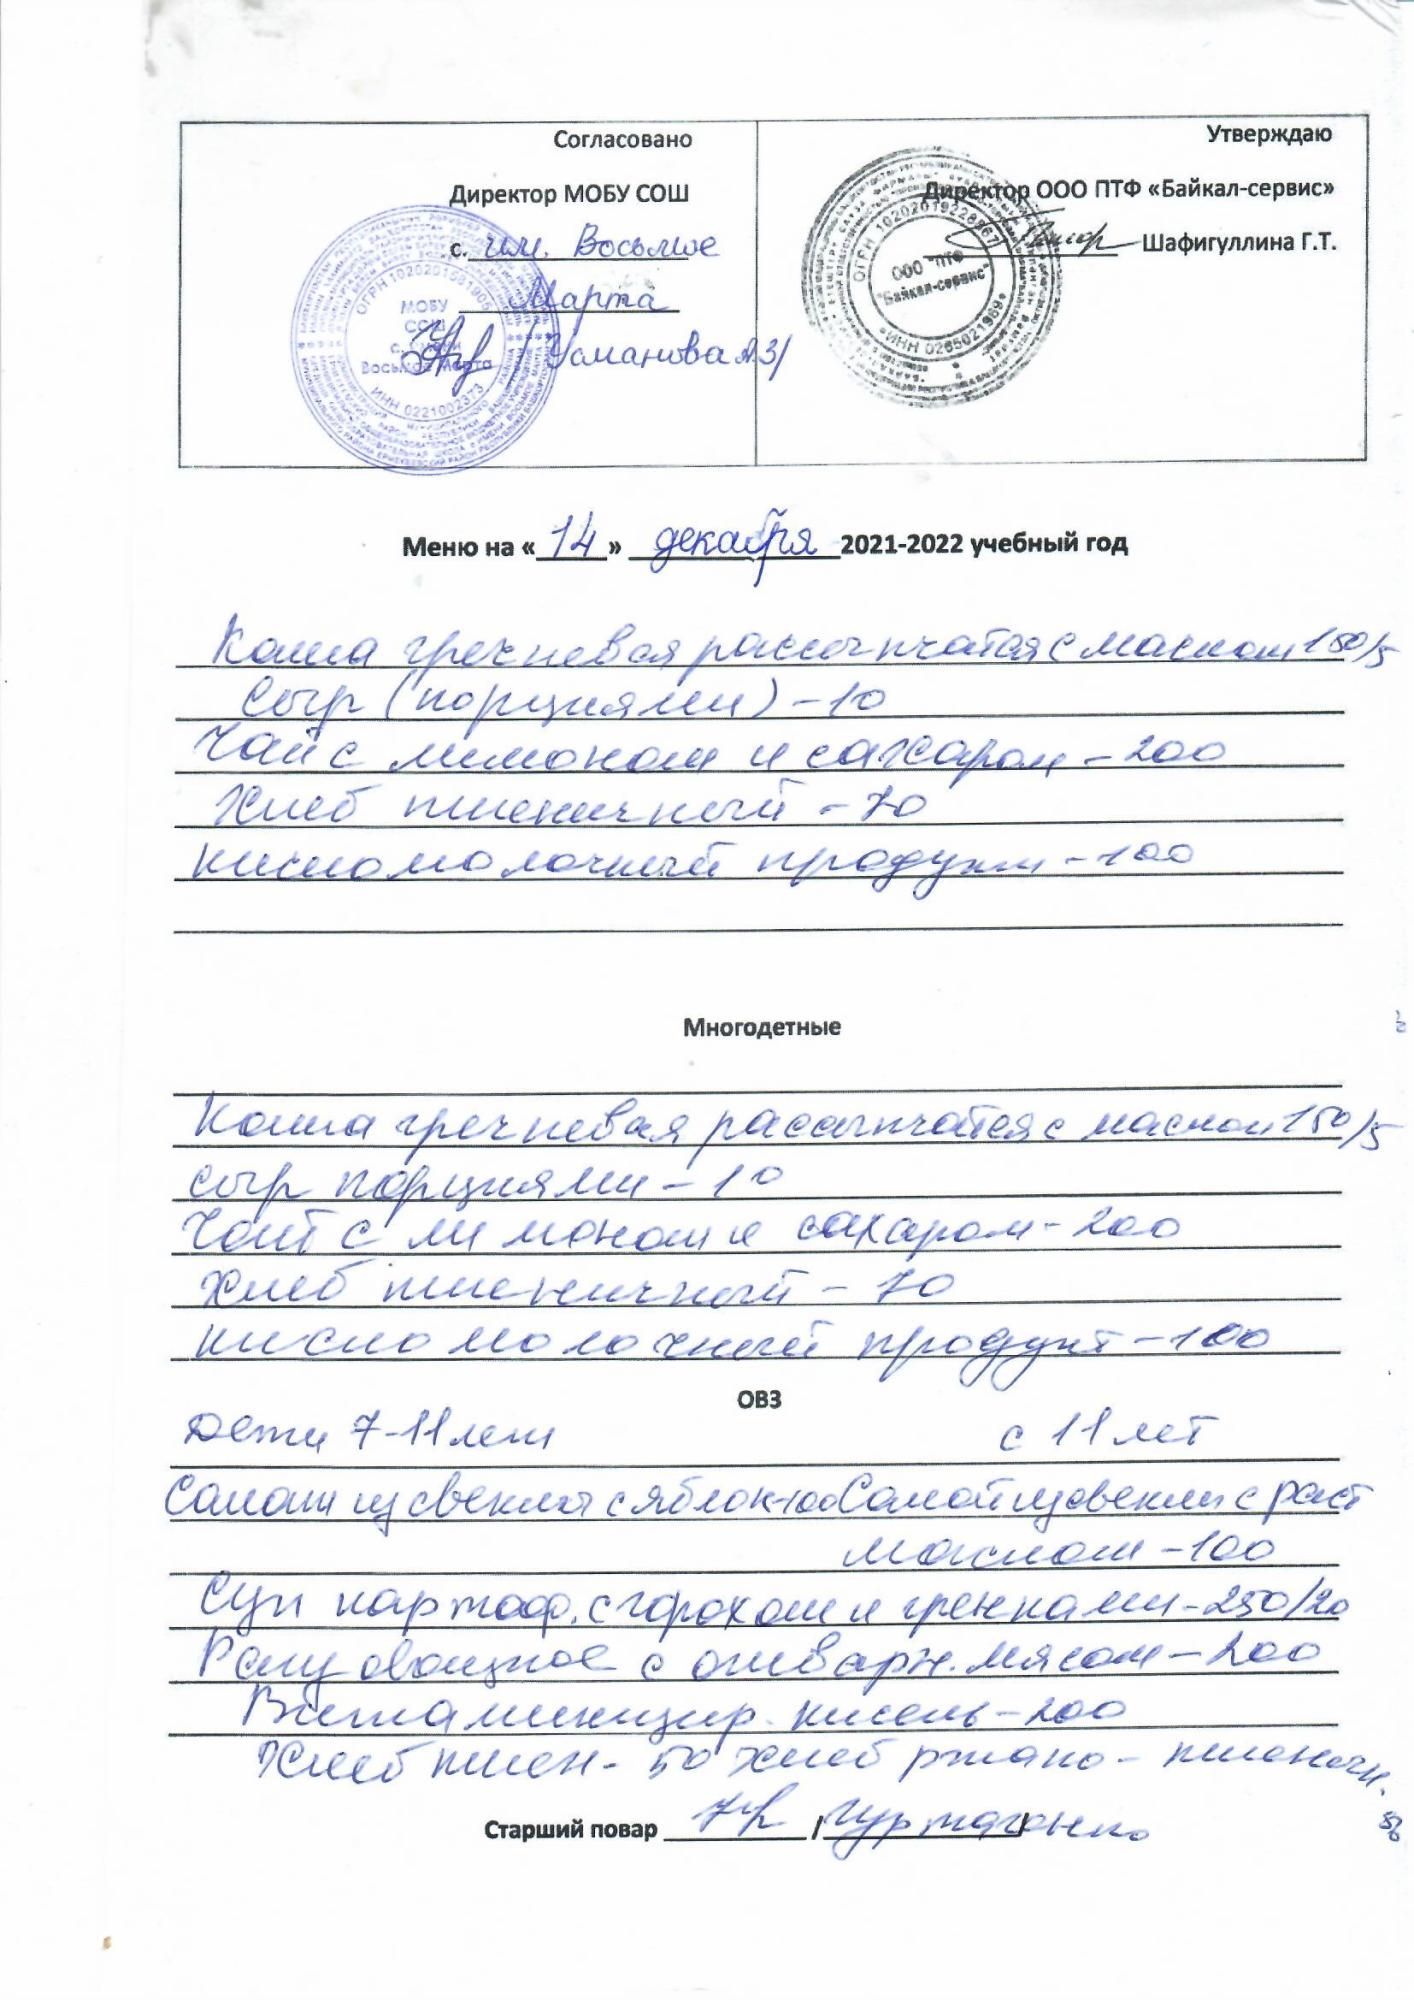 Согласовано
Директор МОБУ СОШ
с. им. Восьмое
Марта
Усманова А.З/
Утверждаю
Директор ООО ПТФ «Байкал-сервис»
Шафигуллина Г.Т.
ОГРН 1020201681905
МОБУ
с. имени
Восьмое Марта
ИНН 0221002373
ООО "ПТФ
"Байкал-сервис"
Меню на « 14 » декабря 2021-2022 учебный год
Каша гречневая рассыпчатая с маслом 150/5
Сыр (порциями) - 10
Чай с лимоном и сахаром - 200
Хлеб пшеничный - 70
кисломолочный продукт - 100
Многодетные
Каша гречневая рассыпчатая с маслом 150/5
сыр порциями - 10
Чай с лимоном и сахаром - 200
хлеб пшеничный - 70
кисломолочный продукт - 100
ОВЗ
Дети 7-11 лет с 11 лет
Салат из свеклы с яблок-100 Салат из свеклы с раст
маслом - 100
Суп картоф. с горохом и гренками - 250/20
Рагу овощное с отварн. мясом - 200
Витаминизир. кисель - 200
Хлеб пшен - 50 хлеб ржано - пшеничн. 50
Старший повар /